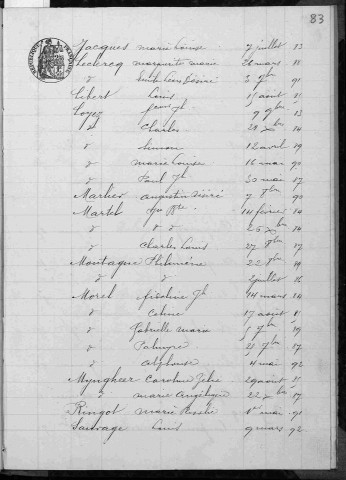 83
Jacques marie Louise 7 juillet 83
Leclercq marguerite marie 26 mars 88
d° Emile Léon Désiré 3 9bre 91
Libert Louis 15 août
Loyez 9 9bre 83
d° Charles 28 xbre 84
d° Simon 12 avril 89
d° marie Louise 16 mai 90
d° Paul Jh 30 mai 87
Marlier augustin Désiré 7 7bre 90
Martel 14 février 84
d° 26 xbre 84
d° Charles Louis 27 7bre 87
Montaigne Philomène 22 7bre 89
d° juillet 86
Morel Jh 14 mars 84
d° Celina 17 août
d° Gabrielle maria 5 7bre 89
d° Palmyre 21 7bre 87
d° alphonse 4 mai 92
Myngheer Caroline Zélie 29 août
d° marie Angélique 22 xbre 87
Ringot marie Rosalie 1er mai 91
Sauvage Louis 9 mars 92